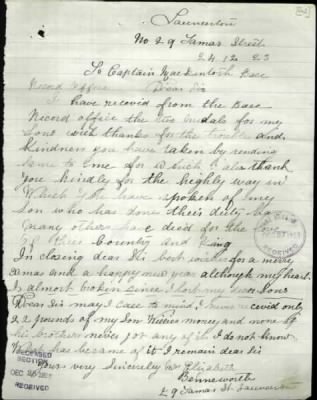 Launceston
No 29 Tamar Street
24 12 23
To Captain MacKintosh Base
Record Office Dear Sir
I have recevid from the Base
Record office the two medals for my
Sons with thanks for the trouble and
kindness you have taken by sending
same to me for which I also thank
you kindly for the highly way in
Which you have spoken of my
Son who has done their duty as
many others have died for the love
of their Country and King
In closing dear Sir best wishes for a merry
Xmas and a happy new year although my heart
is almost broken since I lost my dear Sons
Dear Sir may I case to mind I have recevid only
22 pounds of my Son Willies money and none of
his brother never for any of it I do not know
What has became of it I remain dear Sir
Yours very Sincerely Mr Elizabeth
Bennsworth
29 Tamar St Launceston
RECEIVED
SECTION
DEC
RECEIVED